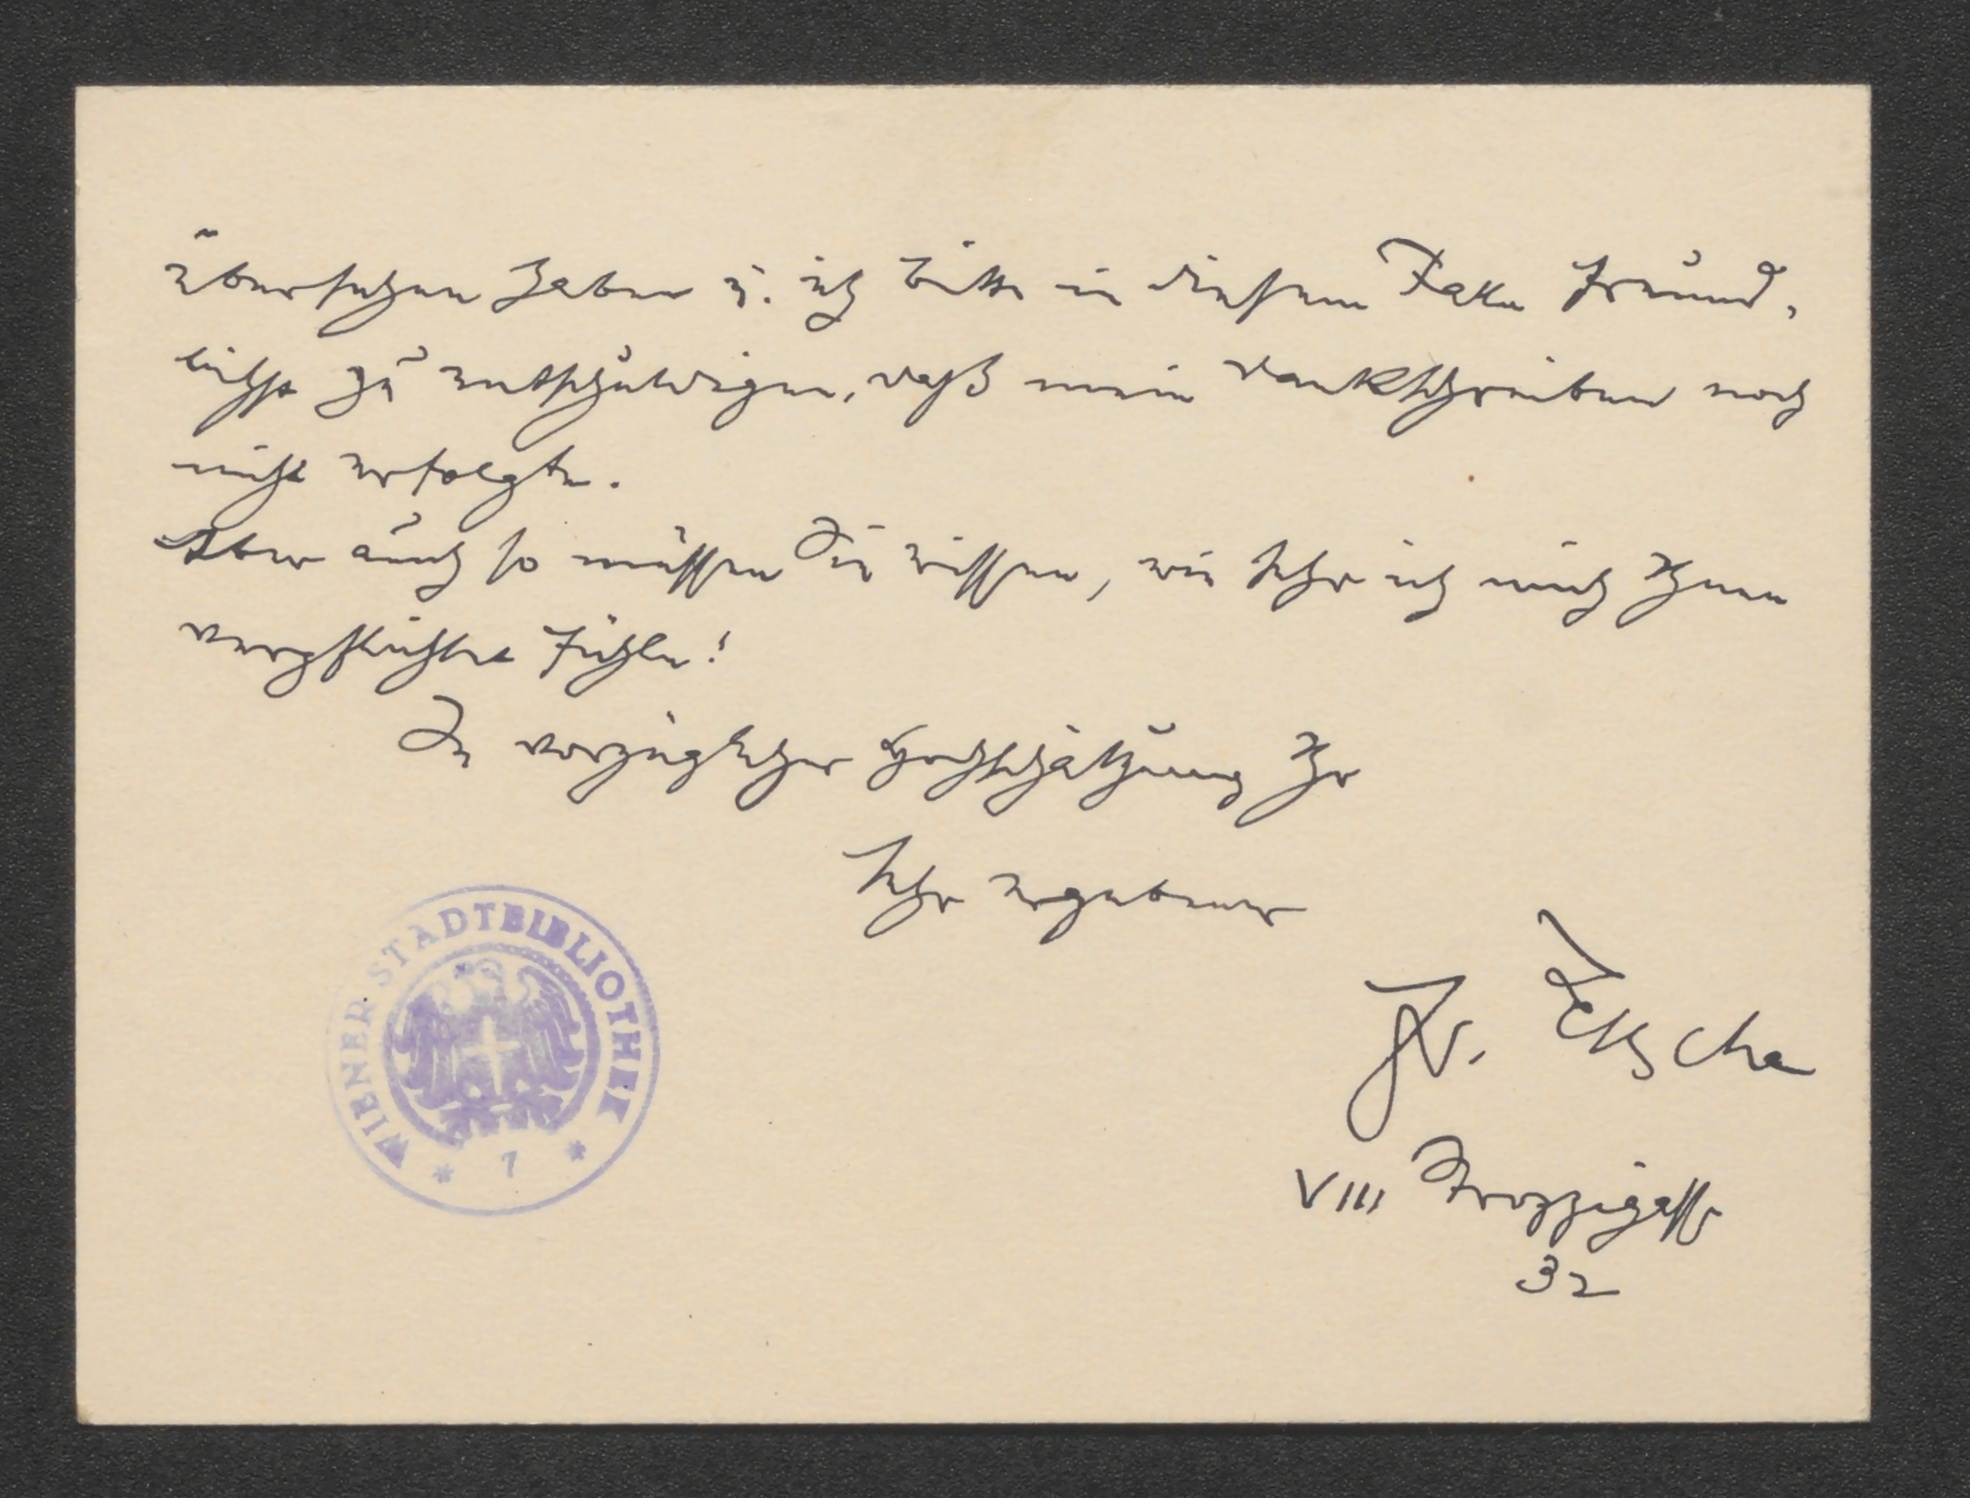 übersehen haben u. ich bitte in diesem Falle freund-
lichst zu entschuldigen, daß mein Dankschreiben noch
nicht erfolgte.
Aber auch so müssen Sie wissen, wie sehr ich mich Ihnen
verpflichtet fühle!
In vorzüglicher Hochschätzung Ihr
sehr ergebener
VIII Strozzigasse
32
WIENER STADTBIBLIOTHEK
* 7 *